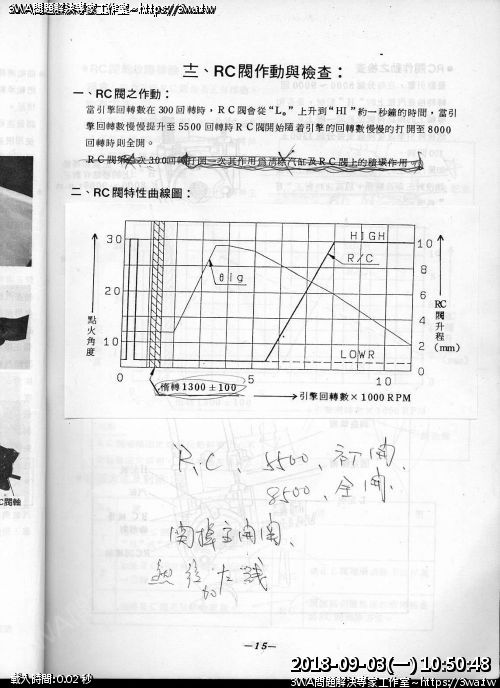 3WA問題解決專家工作室~https://3wa.tw
三、RC閥作動與檢查：
一、RC閥之作動：
當引擎回轉數在300回轉時，RC閥會從“L。”上升到“HI”約一秒鐘的時間，當引
擎回轉數慢慢提升至5500回轉時RC閥開始隨着引擎的回轉數慢慢的打開至8000
回轉時則全開。
次300回轉打開一次其作用爲清除汽缸及RC閥上的積碳作用。
二、RC閥特性曲線圖：
HIGH
R/C
θig
LOWR
30
20
10
點火角度
10
8
6
4
2
0
RC閥升程(mm)
0
5
10
惰轉1300±100
引擎回轉數×1000RPM
R.C、5500、初開、
8500、全開、
C閥軸
—15—
2018-09-03(一) 10:50:48
載入時間:0.02 秒
3WA問題解決專家工作室~https://3wa.tw